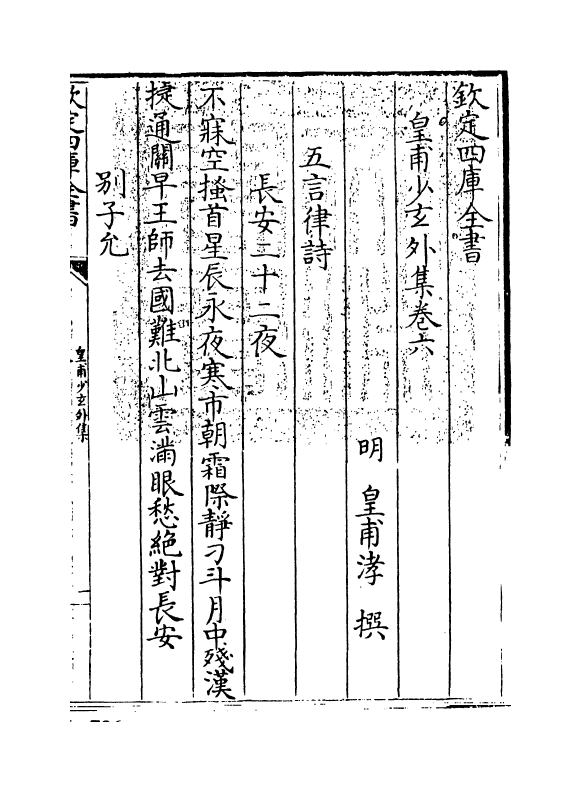 欽定四庫全書
皇甫少玄外集卷六
明 皇甫涍 撰
五言律詩
長安二十二夜
不寐空搔首星辰永夜寒市朝霜際靜刁斗月中殘漢
捷通關早王師去國難北山雲滿眼愁絕對長安
別子允
欽定四庫全書
皇甫少玄外集
一